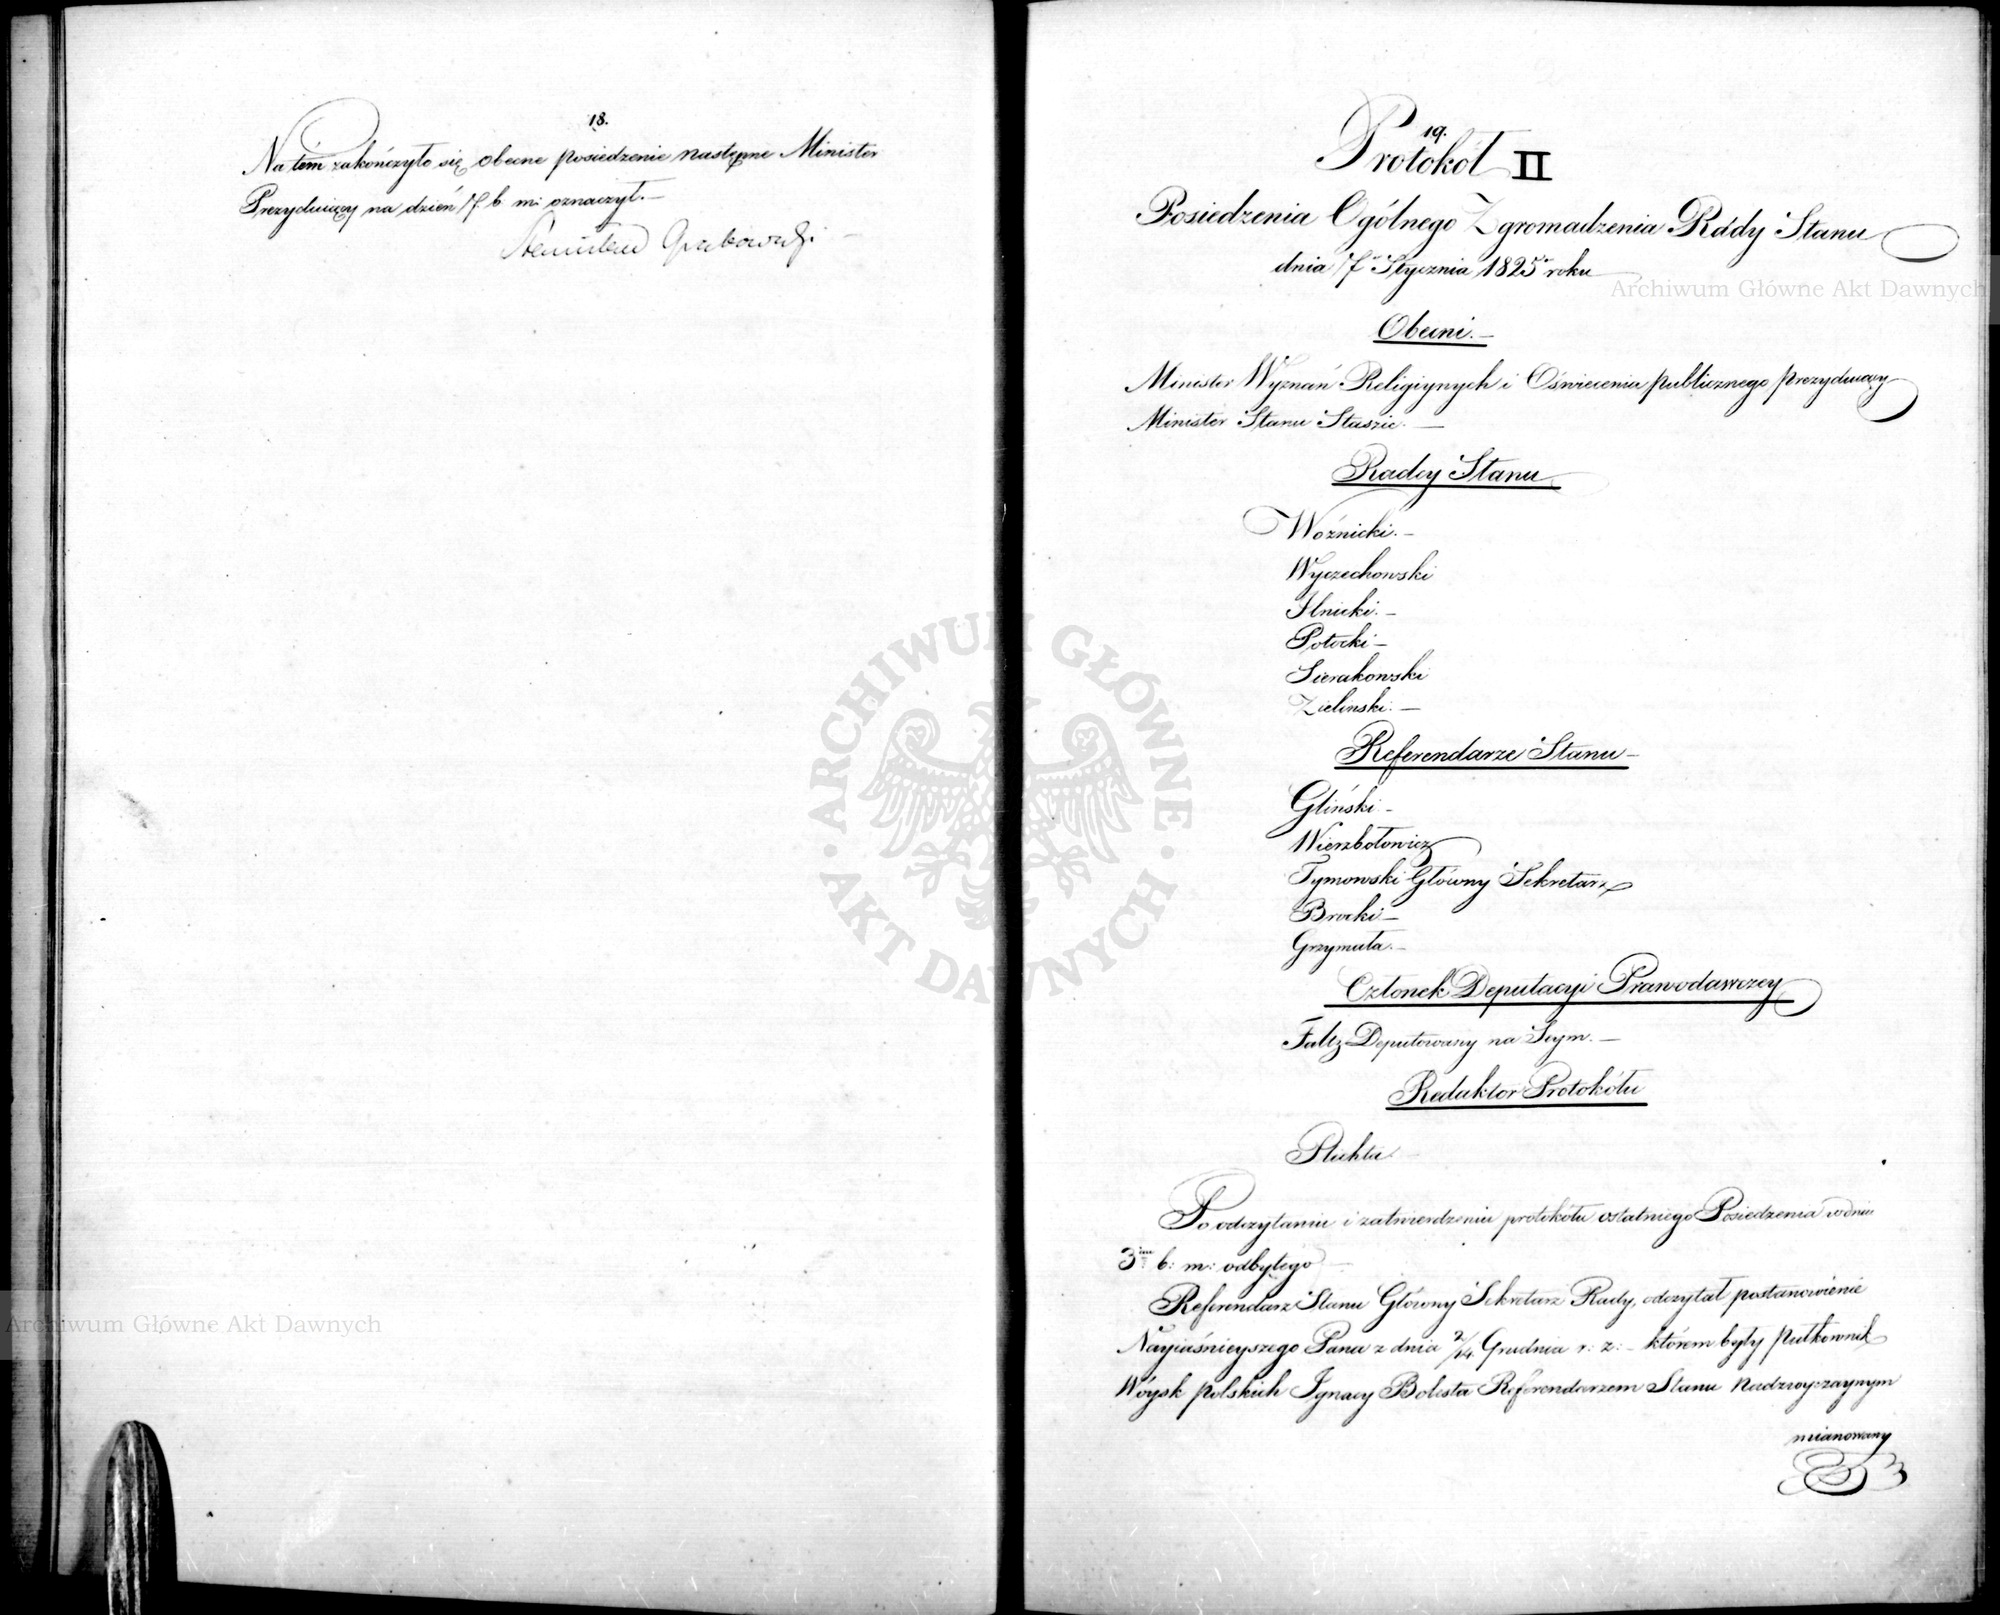 18.
Na tém zakończyło się obecne posiedzenie następne Minister
Prezydujący na dzień 7. b. m: oznaczył. —
Stanisław Grabowski —
19.
Protokół II
Posiedzenia Ogólnego Zgromadzenia Rady Stanu
dnia 7º Stycznia 1825º roku
Obecni. —
Minister Wyznań Religiynych i Oświecenia publicznego prezydujący
Minister Stanu Staszic. —
Radcy Stanu
Woźnicki. —
Wyczechowski
Ilnicki. —
Potocki —
Sierakowski
Zieliński. —
Referendarze Stanu —
Gliński —
Wierzbołowicz
Tymowski Główny Sekretarz
Brocki —
Grzymała. —
Członek Deputacyi Prawodawczey
Faltz Deputowany na Seym. —
Redaktor Protokółu
Pluhta —
Po odczytaniu i zatwierdzeniu protokółu ostatniego Posiedzenia w dniu
3im b: m: odbytego —
Referendarz Stanu Główny Sekretarz Rady, odczytał postanowienie
Nayiaśnieyszego Pana z dnia 2/14. Grudnia r: z: – którem były Pułkownik
Wóysk polskich Ignacy Bolesta Referendarzem Stanu Nadzwyczaynym
mianowany
Archiwum Główne Akt Dawnych
ARCHIWUM GŁÓWNE · AKT DAWNYCH ·
Archiwum Główne Akt Dawnych